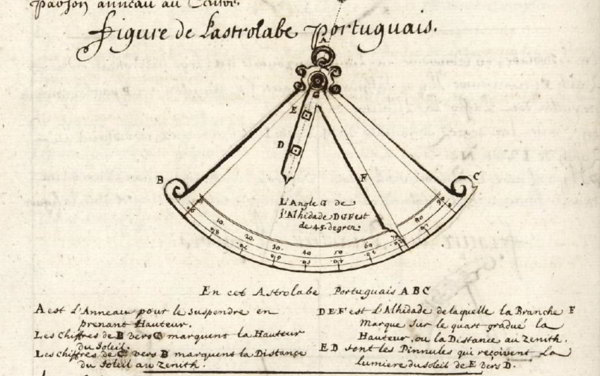 par son anneau au Centre.
Figure de L'astrolabe Portuguais.
A
G
E
D
F
B
C
L'Angle G de
l'Alhidade DGF est
de 45 degrez
10. 20. 30. 40. 50. 60. 70. 80.
En cet Astrolabe Portuguais ABC
A est L'Anneau pour le suspendre en
prenant Hauteur.
Les Chiffres de B vers C marquent la Hauteur
du Soleil.
Les Chiffres de C vers B marquent la Distance
du Soleil au Zenith.
DEF est L'Alhidade de laquelle la Branche F
Marque sur le quart gradué la
Hauteur, ou la Distance au Zenith.
ED sont les Pinnules qui reçoivent la
lumiere du soleil de E vers D.